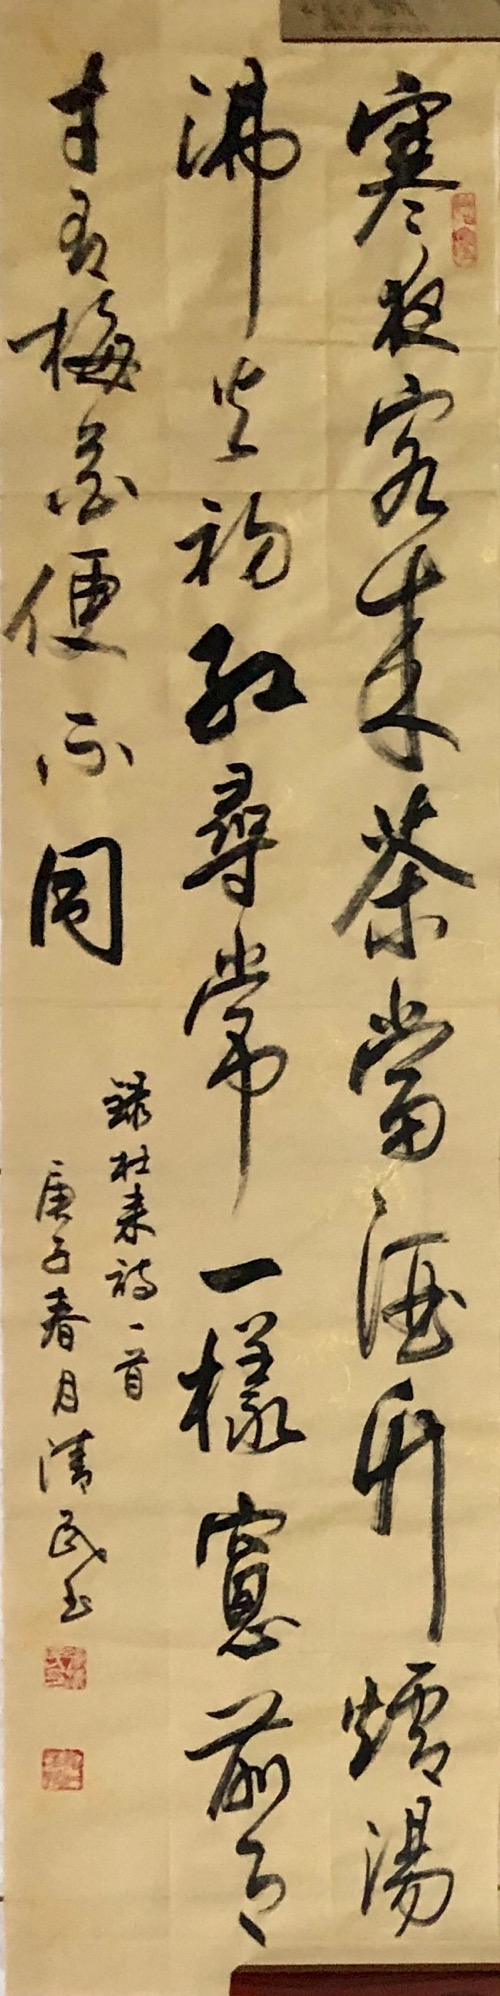 寒夜客来茶當酒竹爐湯
沸火初紅尋常一樣窓前月
才有梅花便不同
録杜耒詩一首
庚子春月清民书